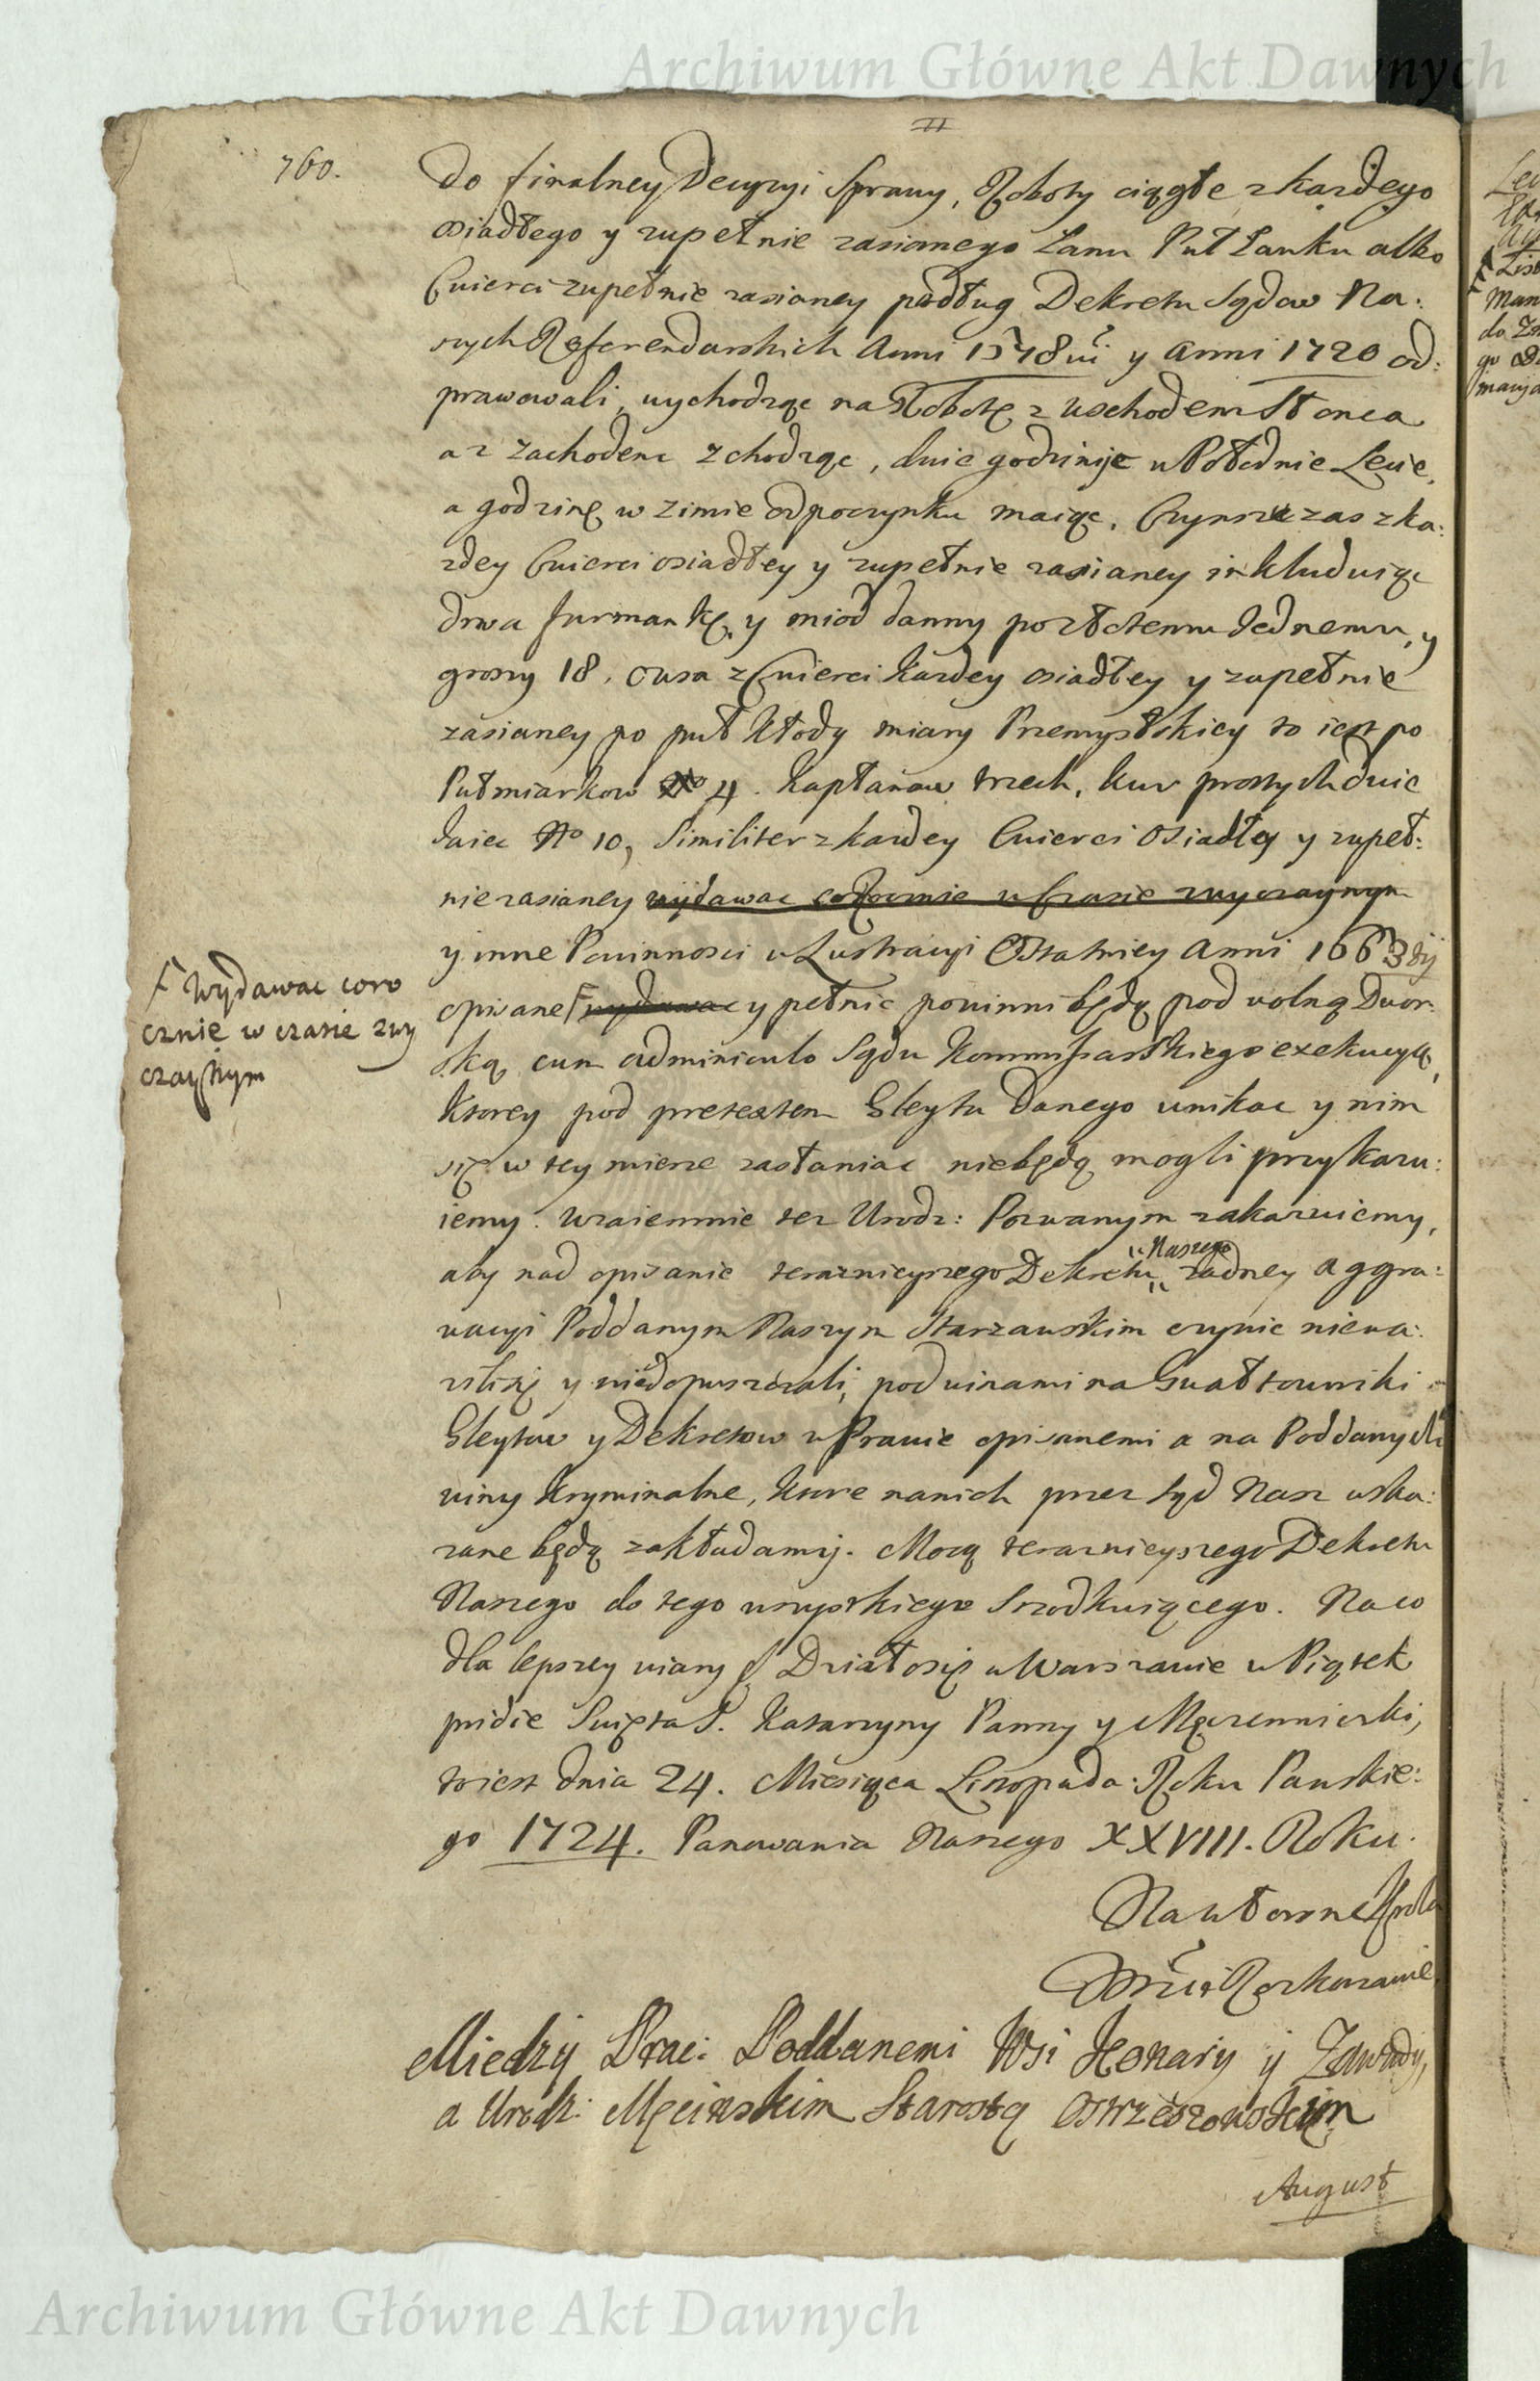 Archiwum Główne Akt Dawnych
760.
do finalney Decyzyi Sprawy, Roboty ciągłe z kazdego
osiadłego y zupełnie zasianego Łanu Puł Łanku albo
Cwierci zupełnie zasianey podług Dekretu Sądow Na:
szych Referendarskich Anni 1578vi y Anni 1720 od:
prawowali, wychodząc na Robotę z wschodem Słonca
a z zachodem zchodząc, dwie godzinye w Połednie Lecie,
a godzinę w zimie odpoczynku maiąc, Czynsze zas z ka:
zdey Cwierci osiadłey y zupełnie zasianey inkluduiąc
drwa furmankę y miod danny po złotemu Jednemu, y
groszy 18. owsa z Cwierci kazdey osiadłey y zupełnie
zasianey po puł kłody miary Przemyslskiey to iest po
Pułmiarkow No 4. kapłanow trzech, kur prostych dwie
Jaiec No 10, Similiter z kazdey Cwierci osiadłey y zupeł:
nie zasianey wydawac corocznie w Czasie zwyczaynym
y inne Powinnosci w Lustracyi Ostatniey Anni 1663tij
opisane wydawac y pełnic powinni będą pod wolną Dwor:
ską cum adminiculo Sądu Kommissarskiego exekucyą,
ktorey pod pretextem Gleytu Danego unikac y nim
się w tey mierze zasłaniac niebędą mogli przykazu:
iemy. wzaiemnie tez Urodz: Pozwanym zakazuiemy,
aby nad opisanie teraznieyszego Dekretu Naszego zadney aggra:
wacyi Poddanym Naszym Starzawskim czynic niewa:
zyli się y niedopuszczali, pod winami na Gwałtowniki
Gleytow y Dekretow w Prawie opisanemi a na Poddanych
winy kryminalne, ktore na nich przez Sąd Nasz wska:
zane będą zakładamy. Mocą teraznieyszego Dekretu
Naszego do tego wszystkiego Srzodkuiącego. Na co
dla lepszey wiary Działo się w Warszawie w Piątek
pridie Swięta S. Katarzyny Panny y Męczenniczki,
to iest dnia 24. Miesiąca Listopada Roku Panskie:
go 1724. Panowania Naszego XXVIII. Roku.
Na własne Krola
Rozkazanie
F Wydawac coro
cznie w czasie zwy
czaynym
Miedzy Prac: Poddanemi Wsi Konary y Zawady,
a Urodz: Męcinskim Starostą Ostrzeszowskim
August
Archiwum Główne Akt Dawnych